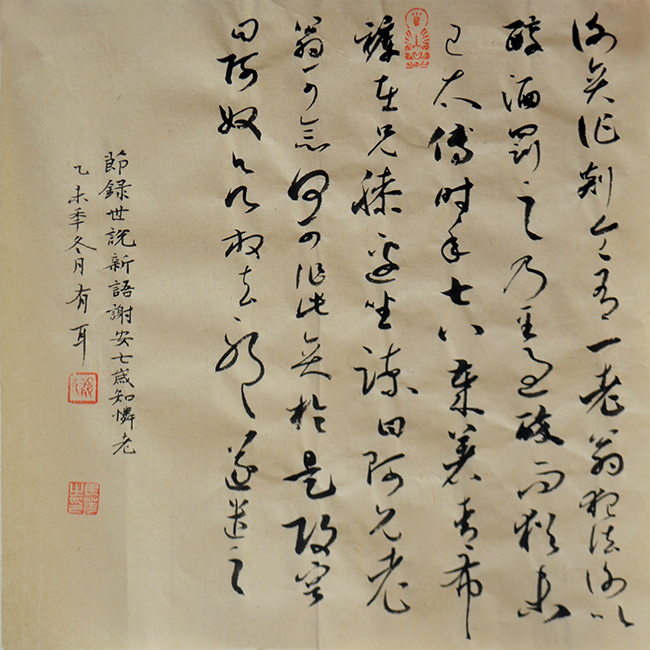 謝奕作剡令有一老翁犯法謝以
醇酒罰之乃至過醉而猶未
已太傅時年七八歲著青布
褲在兄膝邊坐諫曰阿兄老
翁可念何可作此奕於是改容
曰阿奴欲放去邪遂遣之
節錄世說新語謝安七歲知憐老
乙未秊冬月有耳